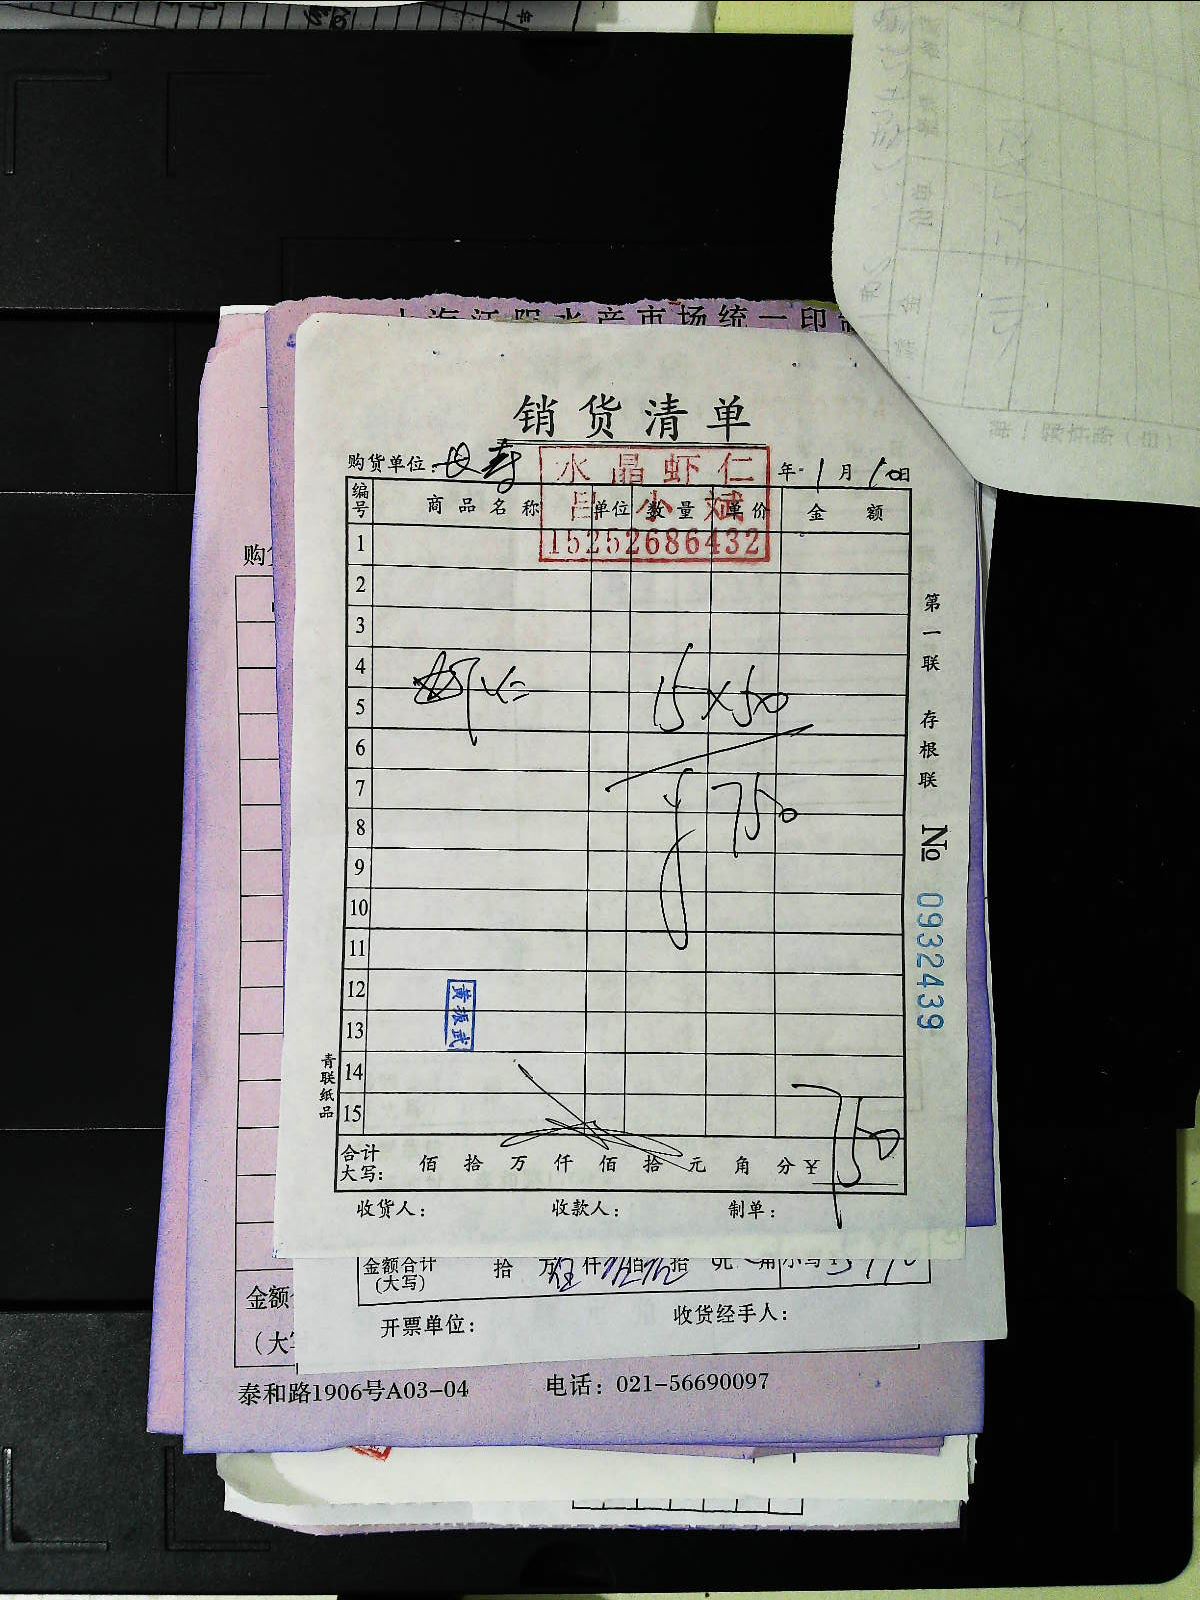 上海江阳水产市场统一印制
销货清单
购货单位: 长寿 年 1 月 10 日
水晶虾仁
吕小斌
15252686432
编号 商品名称 单位 数量 单价 金额
1
2
3
4
虾仁 15×50
5
6
7
¥750
8
9
10
11
12
13
14
15
黄振武
合计大写: 佰 拾 万 仟 佰 拾 元 角 分 ¥ 750
收货人: 收款人: 制单:
第一联 存根联
№ 0932439
青联纸品
购
金额合计(大写) 拾 万 伍 仟 佰 拾 元 角 小写:
开票单位: 收货经手人:
金额
(大
泰和路1906号A03-04 电话: 021-56690097